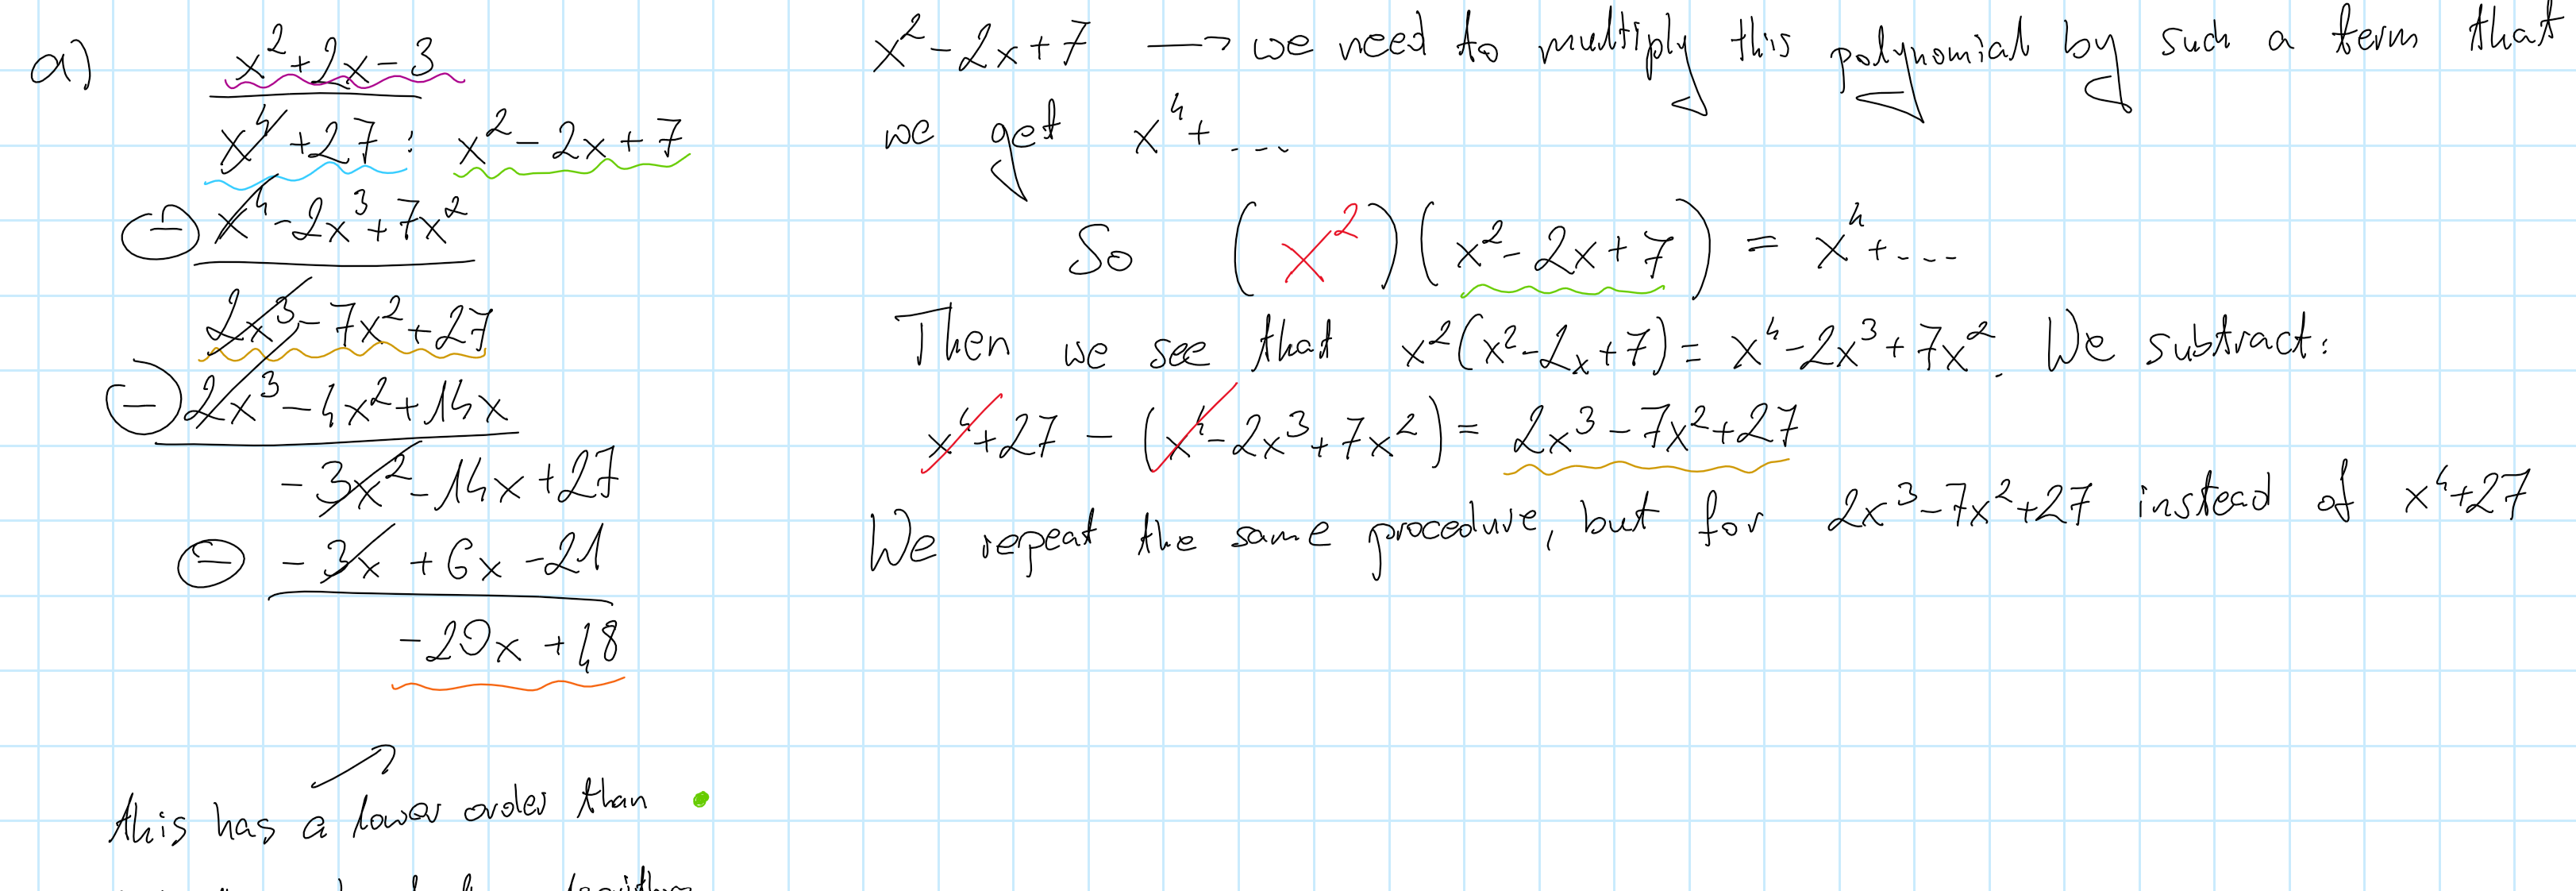 a)
x² + 2x - 3
x⁴ + 27 : x² - 2x + 7
⊖ x⁴ - 2x³ + 7x²
2x³ - 7x² + 27
⊖ 2x³ - 4x² + 14x
- 3x² - 14x + 27
⊖ - 3x + 6x - 21
- 20x + 48
this has a lower order than
x² - 2x + 7 → we need to multiply this polynomial by such a term that
we get x⁴ + ...
So (x²)(x² - 2x + 7) = x⁴ + ...
Then we see that x²(x² - 2x + 7) = x⁴ - 2x³ + 7x². We subtract:
x⁴ + 27 - (x⁴ - 2x³ + 7x²) = 2x³ - 7x² + 27
We repeat the same procedure, but for 2x³ - 7x² + 27 instead of x⁴ + 27